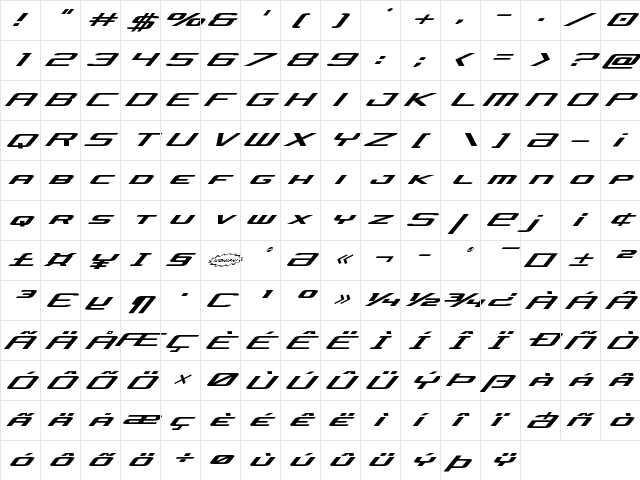 ! " # $ % & ' ( ) ' + , - . / 0
1 2 3 4 5 6 7 8 9 : ; < = > ? @
A B C D E F G H I J K L M N O P
Q R S T U V W X Y Z [ \ ] a _ i
A B C D E F G H I J K L M N O P
Q R S T U V W X Y Z S | e j ¡ ¢
£ ¤ ¥ I § a « ¬ - ¯ D ± ²
³ E µ ¶ · C ¹ º » ¼ ½ ¾ ¿ À Á Â
Ã Ä Å Æ Ç È É Ê Ë Ì Í Î Ï Ð Ñ Ò
Ó Ô Õ Ö × Ø Ù Ú Û Ü Ý Þ ß À Á Â
Ã Ä Å æ Ç È É Ê Ë ì í î ï ð ñ ò
ó ô õ ö ÷ ø ù ú û ü ý þ ÿ